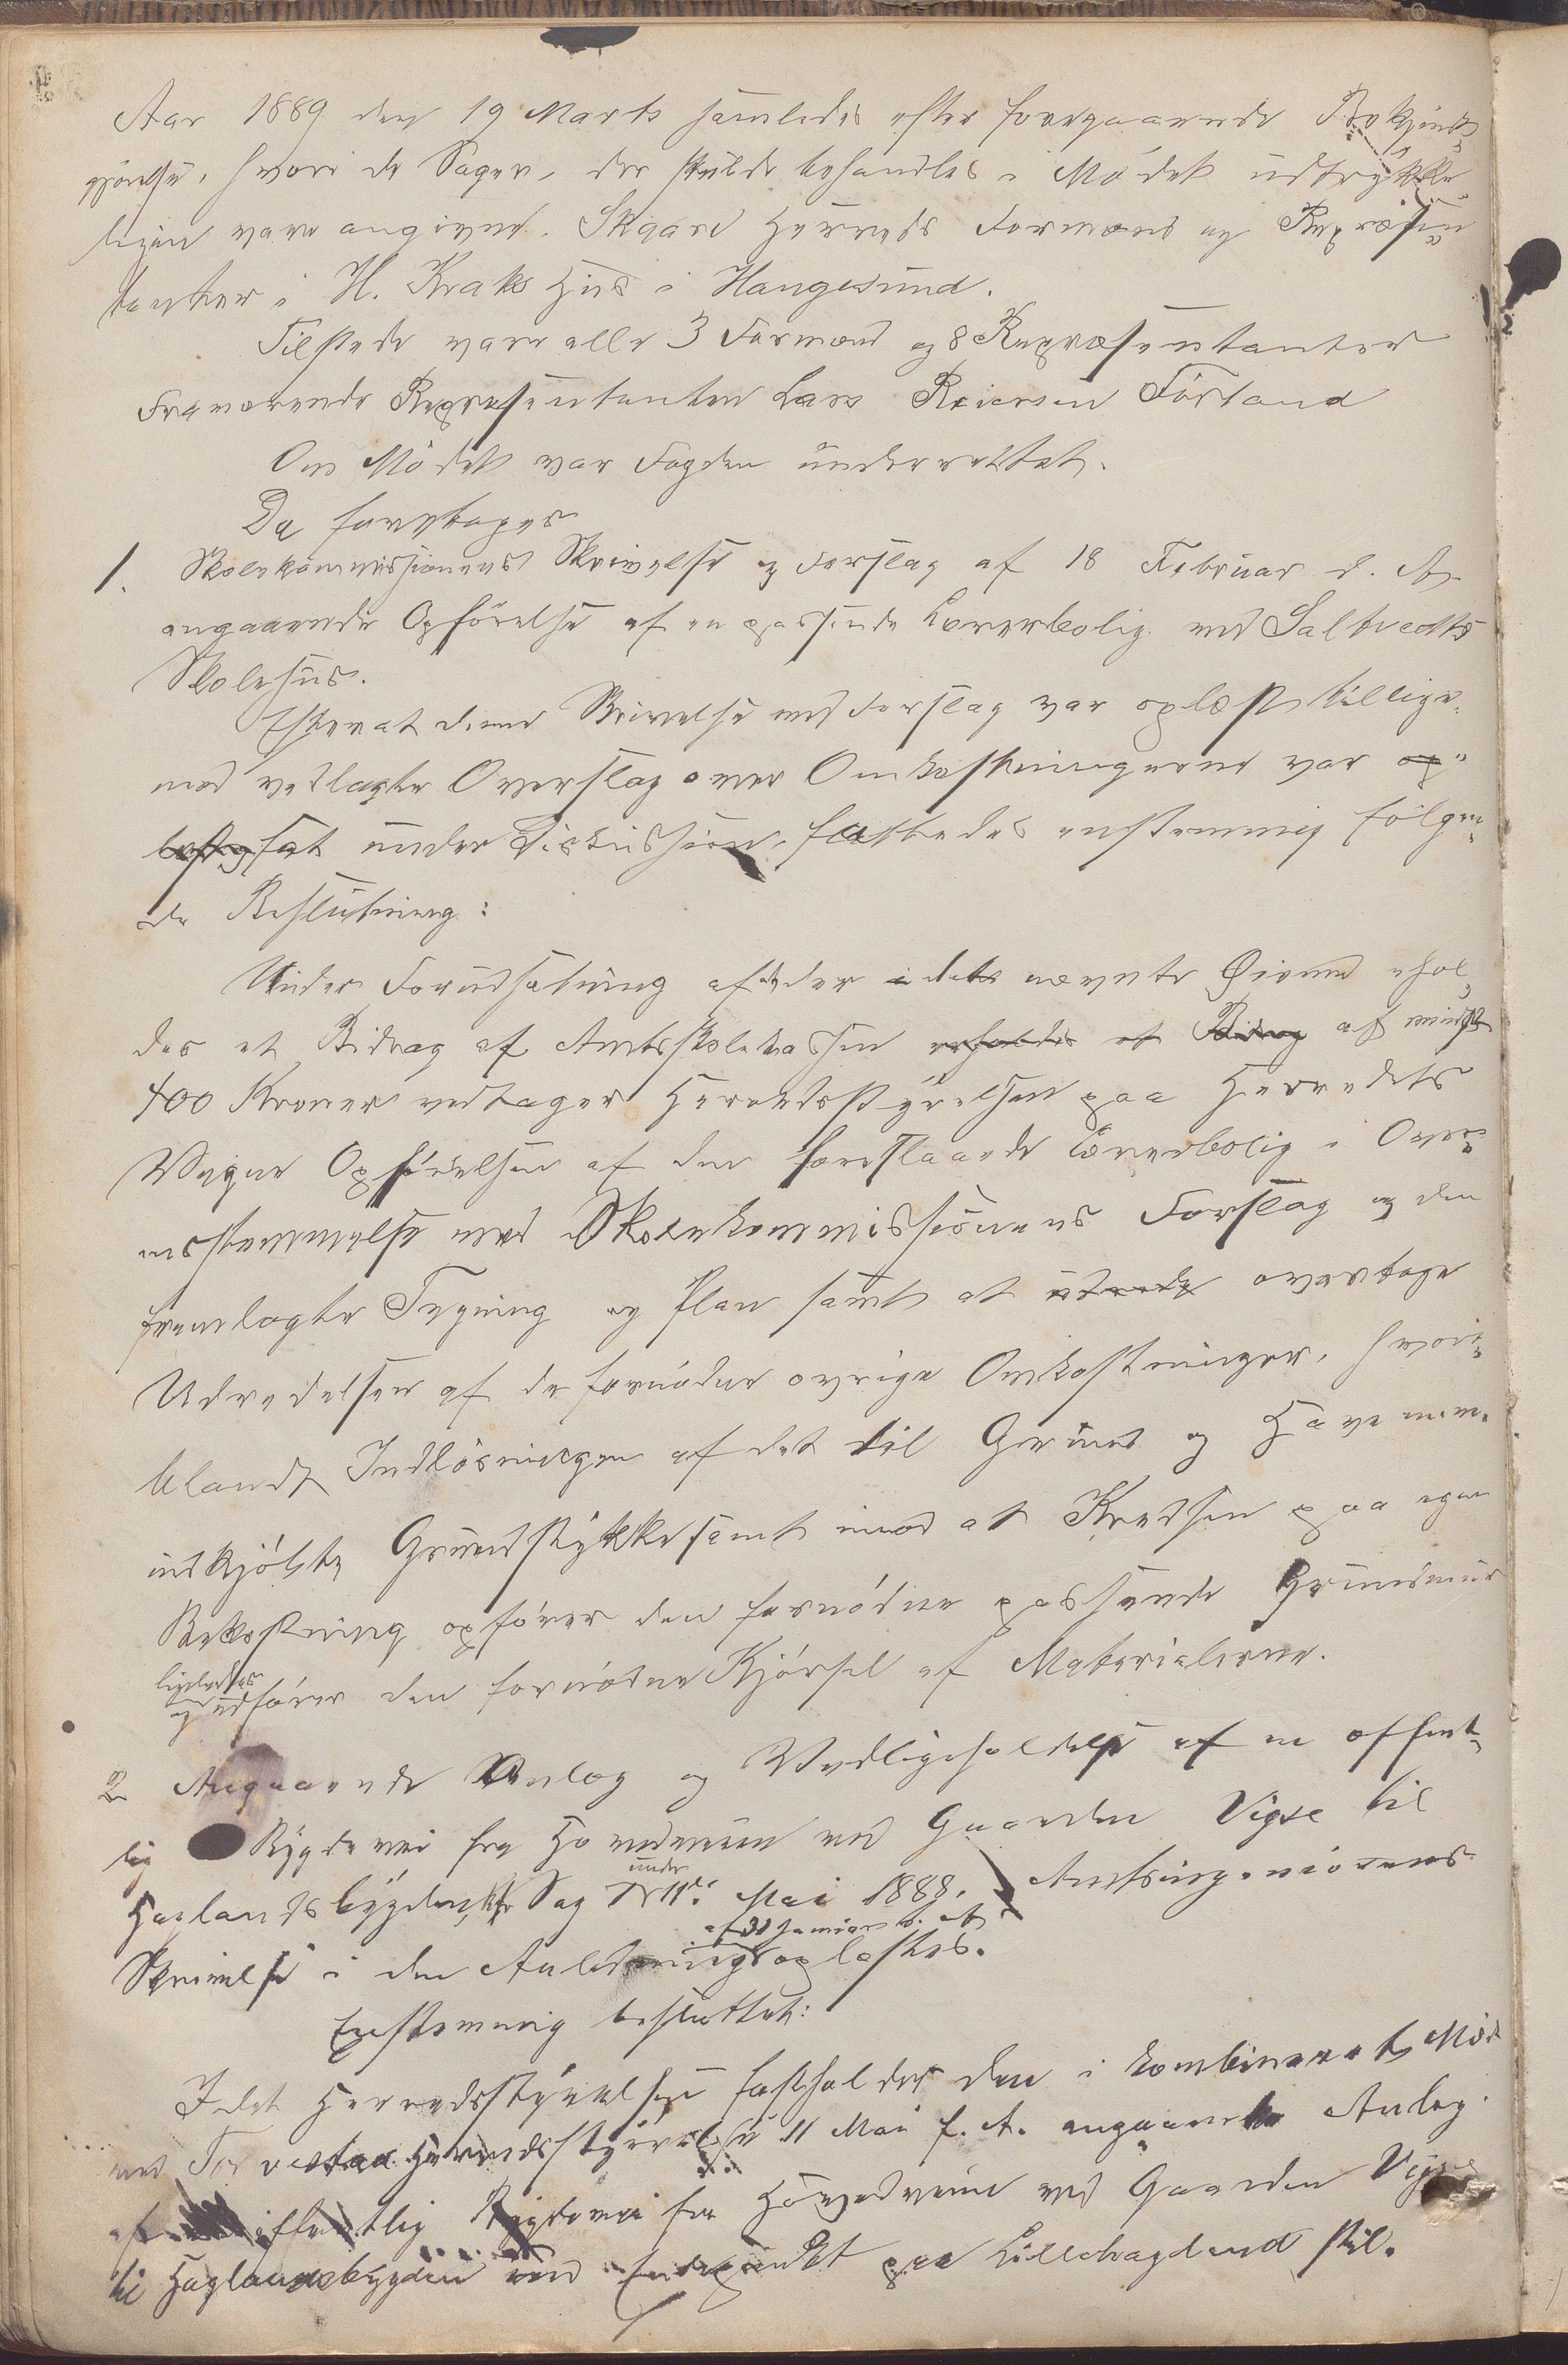 Aar 1889 den 19 Marts samledes efter foregaaende Bekjendt-
gjørelse, hvori de Sager, der skulde behandles i Mødet udtrykke-
ligen vare angivne. Skaare Herreds Formænd og Repræsen-
tanter i H. Kraks Hus i Haugesund.
Tilstede vare alle 3 Formænd og 8 Repræsentanter
Fraværende Repræsentanten Lars Reiersen Førland
Om Mødet var Fogden underrettet.
Da foretages
1. Skolekommissionens Skrivelse og Forslag af 18 Februar d. A.
angaaende Opførelse af en passende Lærerbolig ved Saltvedts
Skolehus.
Efterat denne Skrivelse med Forslag var oplæst tillige-
med vedlagte Overslag over Omkostningerne var og
sat under Diskussion, fattedes enstemmig følgen-
de Beslutning:
Under Forudsætning af der i det nævnte Øiemed ehol-
des et Bidrag af Amtsskolekassen erholdes et Bidrag af mindst
400 Kroner vedtager Herredsstyrelsen paa Herredets
Vegne Opførelsen af den foreslaaede Lærerbolig i Over-
ensstemmelse med Skolekommissionens Forslag og den
fremlagte Tegning og Plan samt at udrede overtage
Udredelsen af de fornødne øvrige Omkostninger, hvori-
blandt Indløsningen af det til Grund og Have
indkjøbte Grundstykke samt imod at Kredsen paa egen
Bekostning opfører den fornødne passende Grundmur
ligeledes
og udfører den fornødne Kjørsel af Materialerne.
2 Angaaende Anlæg og Vedligeholdelse af en offent-
lig Bygdevei fra Hovedveien ved Gaarden Vigse til
Haglandsbygden, Sag Nr 11 Mai 1888. Amtsingeniørens
under
af 31 Januar d. A.
Skrivelse i den Anledning oplæstes.
Enstemmig besluttet:
Idet Herredsstyrelsen fastholder den i kombineret Møde
med Torvestad Herredsstyrelse 11 Mai f. A. angaaende Anlæg
af offentlig Bygdevei fra Hovedveien ved Gaarden Vigse
til Haglandsbygden med Endepunkt paa Lillehagland stil-